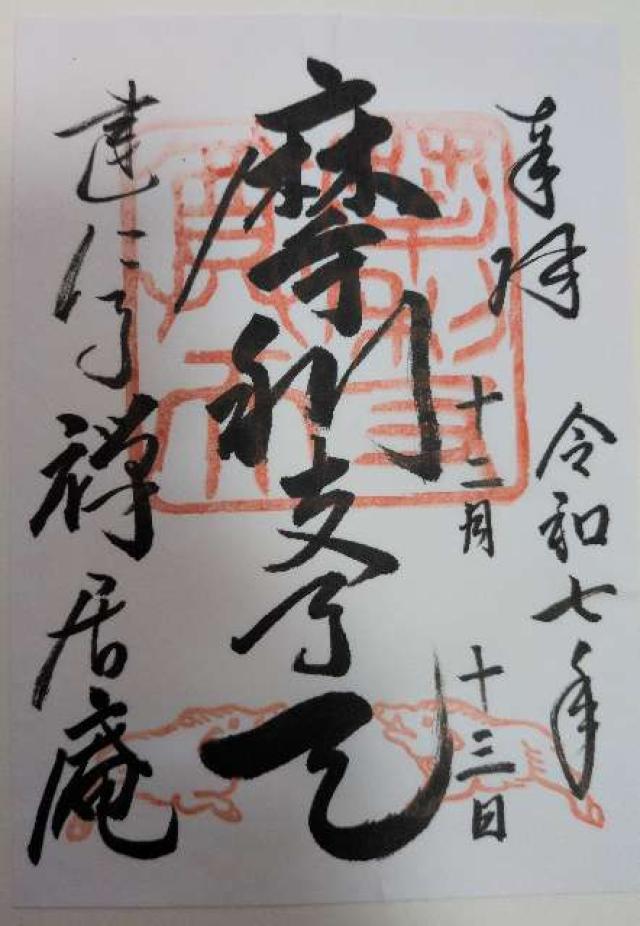 奉拝
令和七年
十二月 十三日
摩利支尊天
建仁寺
禅居庵